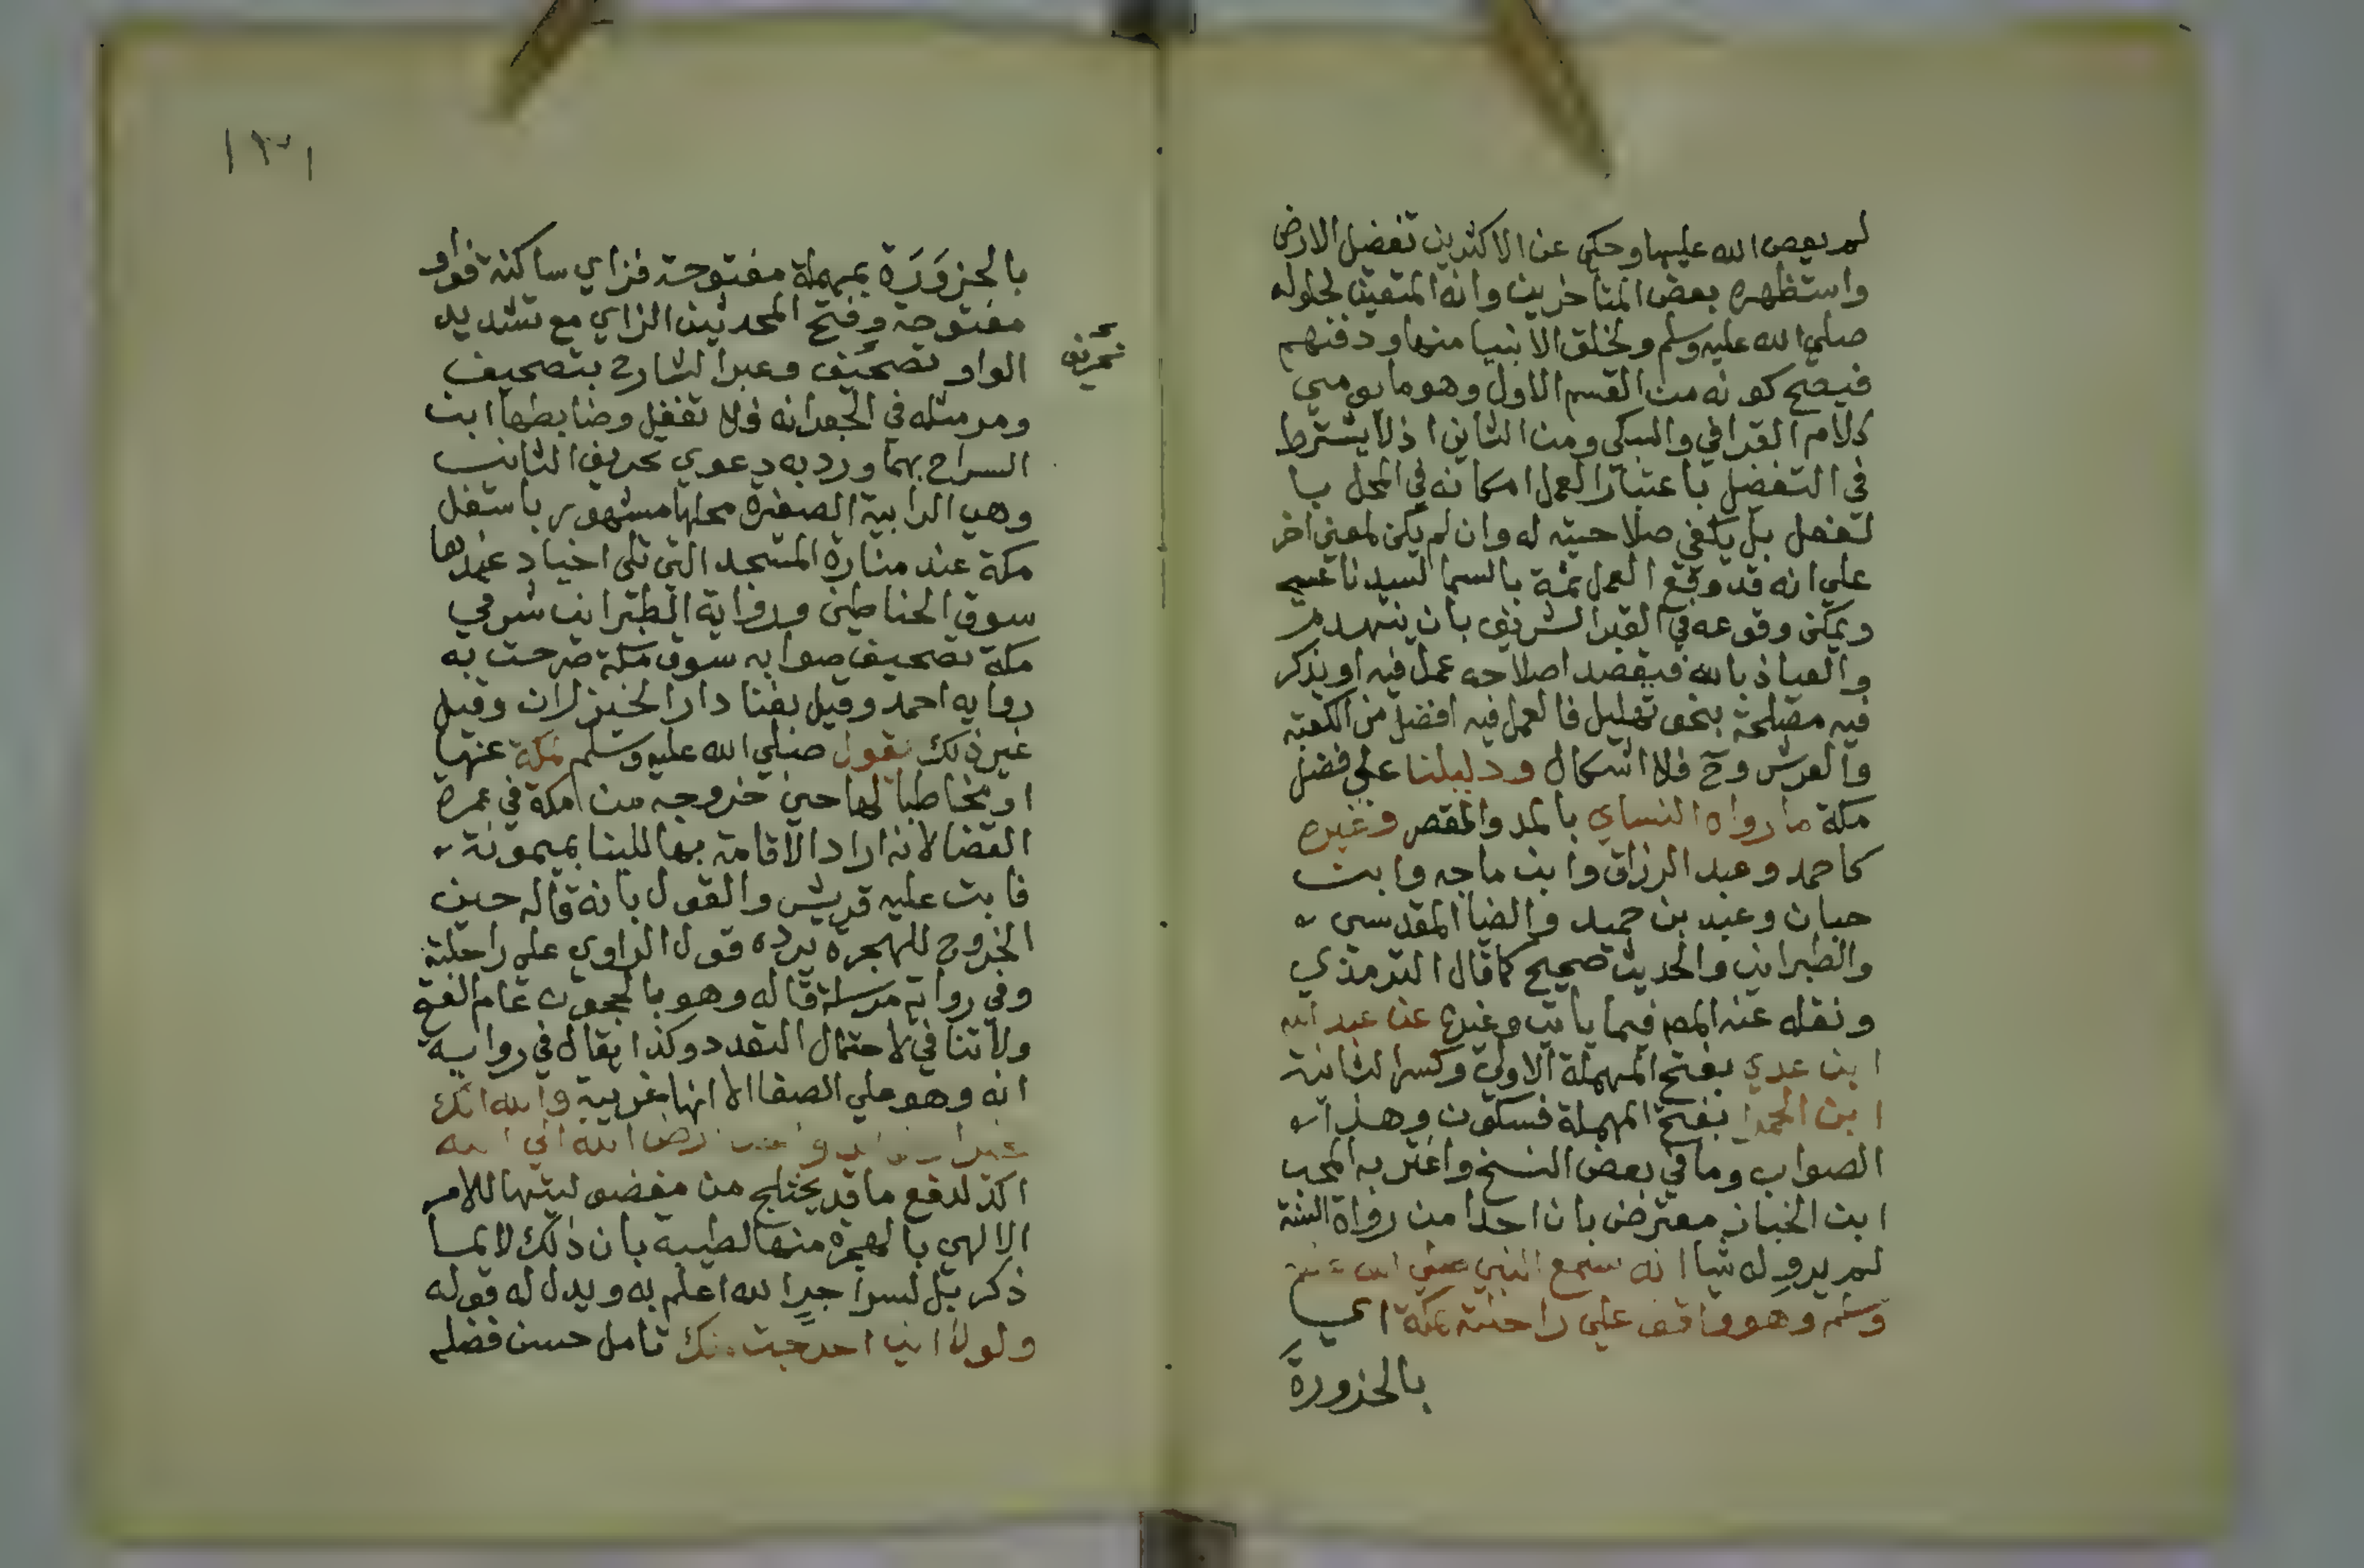 لم يعص الله عليها وحكي عن الاكثرين تفضيل الارض
واستظهره بعض المتاخرين وانه المتعين لحلوله
صلى الله عليه وسلم ولخلق الانبيا منها ودفنهم
فيصح كونه من القسم الاول وهو ما يومي
كلام القرافي والسبكي ومن الثاني اذ لا يشترط
في التفضيل باعتبار العمل امكانه في المحل
بل يكفي صلاحيته له وان لم يكن لمعني اخر
علي انه قد وقع العمل ثمة بالسما لسيدنا
ويمكن وقوعه في القبر الشريف بان ينهدم
والعياذ بالله فيقصد اصلاحه عمل فيه او يذكر
فيه مصلحة بنحو تهليل فالعمل فيه افضل من الكعبة
والعرش وح فلا اشكال ودليلنا علي فضل
مكة ما رواه النساي بالمد والقصر وغيره
كاحمد وعبد الرزاق وابن ماجه وابن
حبان وعبد بن حميد والضيا المقدسي
والطبراني والحديث صحيح كما قال الترمذي
ونقله عنه المص فيما ياتي وغيره عن عبد الله
ابن عدي بفتح المهملة الاولي وكسر الثانية
ابن الحمرا بفتح المهملة فسكون وهذا
الصواب وما في بعض النسخ واغتر به المحب
ابن الخباز معترض بان احدا من رواة الستة
لم يرو له شيا انه سمع النبي صلي الله عليه
وسلم وهو واقف علي راحلته بمكة اي
بالحزورة
١٣١
بالحزوَرَة بمهملة مفتوحة فزاي ساكنة فواو
مفتوحة وفتح المحدثين الزاي مع تشديد
الواو تصحيف وعبر الشارح بتصحيف
تحريف
ومر مثله في الجعرانه فلا تغفل وضابطها ابن
السراج بهما ورد به دعوي تحريف الثاني
وهي الرابية الصغيرة محلها مشهور باسفل
مكة عند منارة المسجد التي تلي اجياد عندها
سوق الحناطين ورواية الطبراني شرقي
مكة تصحيف صوابه سوق مكة صرحت به
رواية احمد وقيل بفنا دار الخيزران وقيل
غير ذلك يقول صلي الله عليه وسلم لمكة عنها
او مخاطبا لها حين خروجه من مكة في عمرة
القضا لانه اراد الاقامة بها للبنا بميمونة
فابت عليه قريش والقول بانه قاله حين
الخروج للهجرة يرده قول الراوي علي راحلته
وفي رواية مرسلة قاله وهو بالحجون عام الفتح
ولا تنافي لاحتمال التعدد وكذا يقال في رواية
انه وهو علي الصفا الا انها غريبة والله انك
ارض الله الي الله
اكد لدفع ما قد يختلج من مفضوليتها للامر
الالهي بالهجرة منها لطيبة بان ذلك لا لما
ذكر بل لسر اجرا لله اعلم به ويدل له قوله
ولولا اني اخرجت منك تامل حسن فضلم